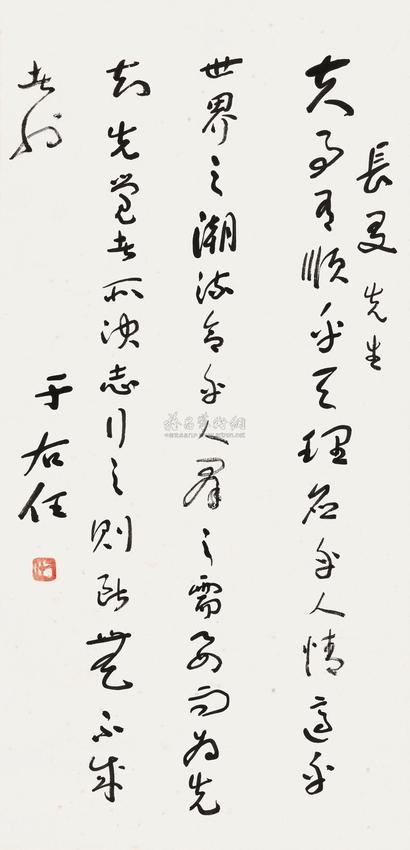 長先生
夫事有順乎天理應乎人情適乎
世界之潮流合乎人群之需要而為先
知先覺者所決志行之則斷無不成
者也
于右任